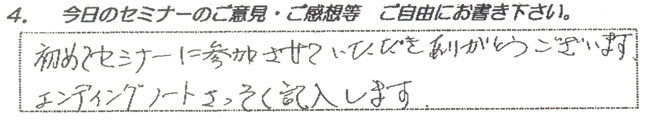 4. 今日のセミナーのご意見・ご感想等 ご自由にお書き下さい。
初めてセミナーに参加させていただきありがとうございます。
エンディングノートさっそく記入します.